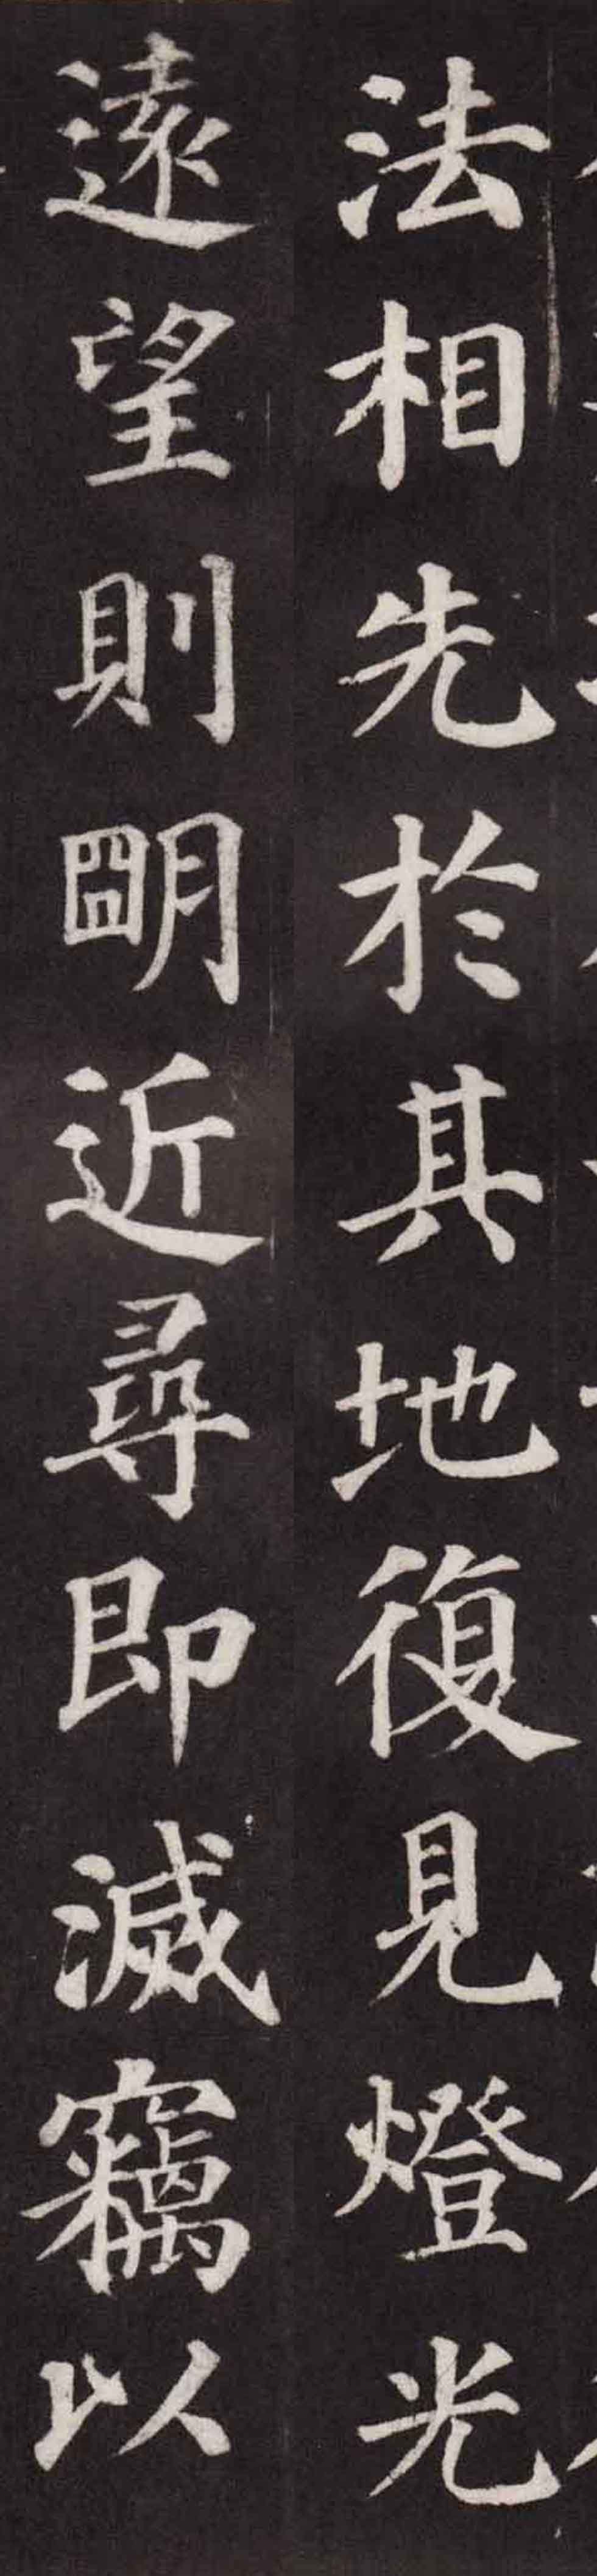 法相先於其地復見燈光
遠望則朙近尋即滅竊以